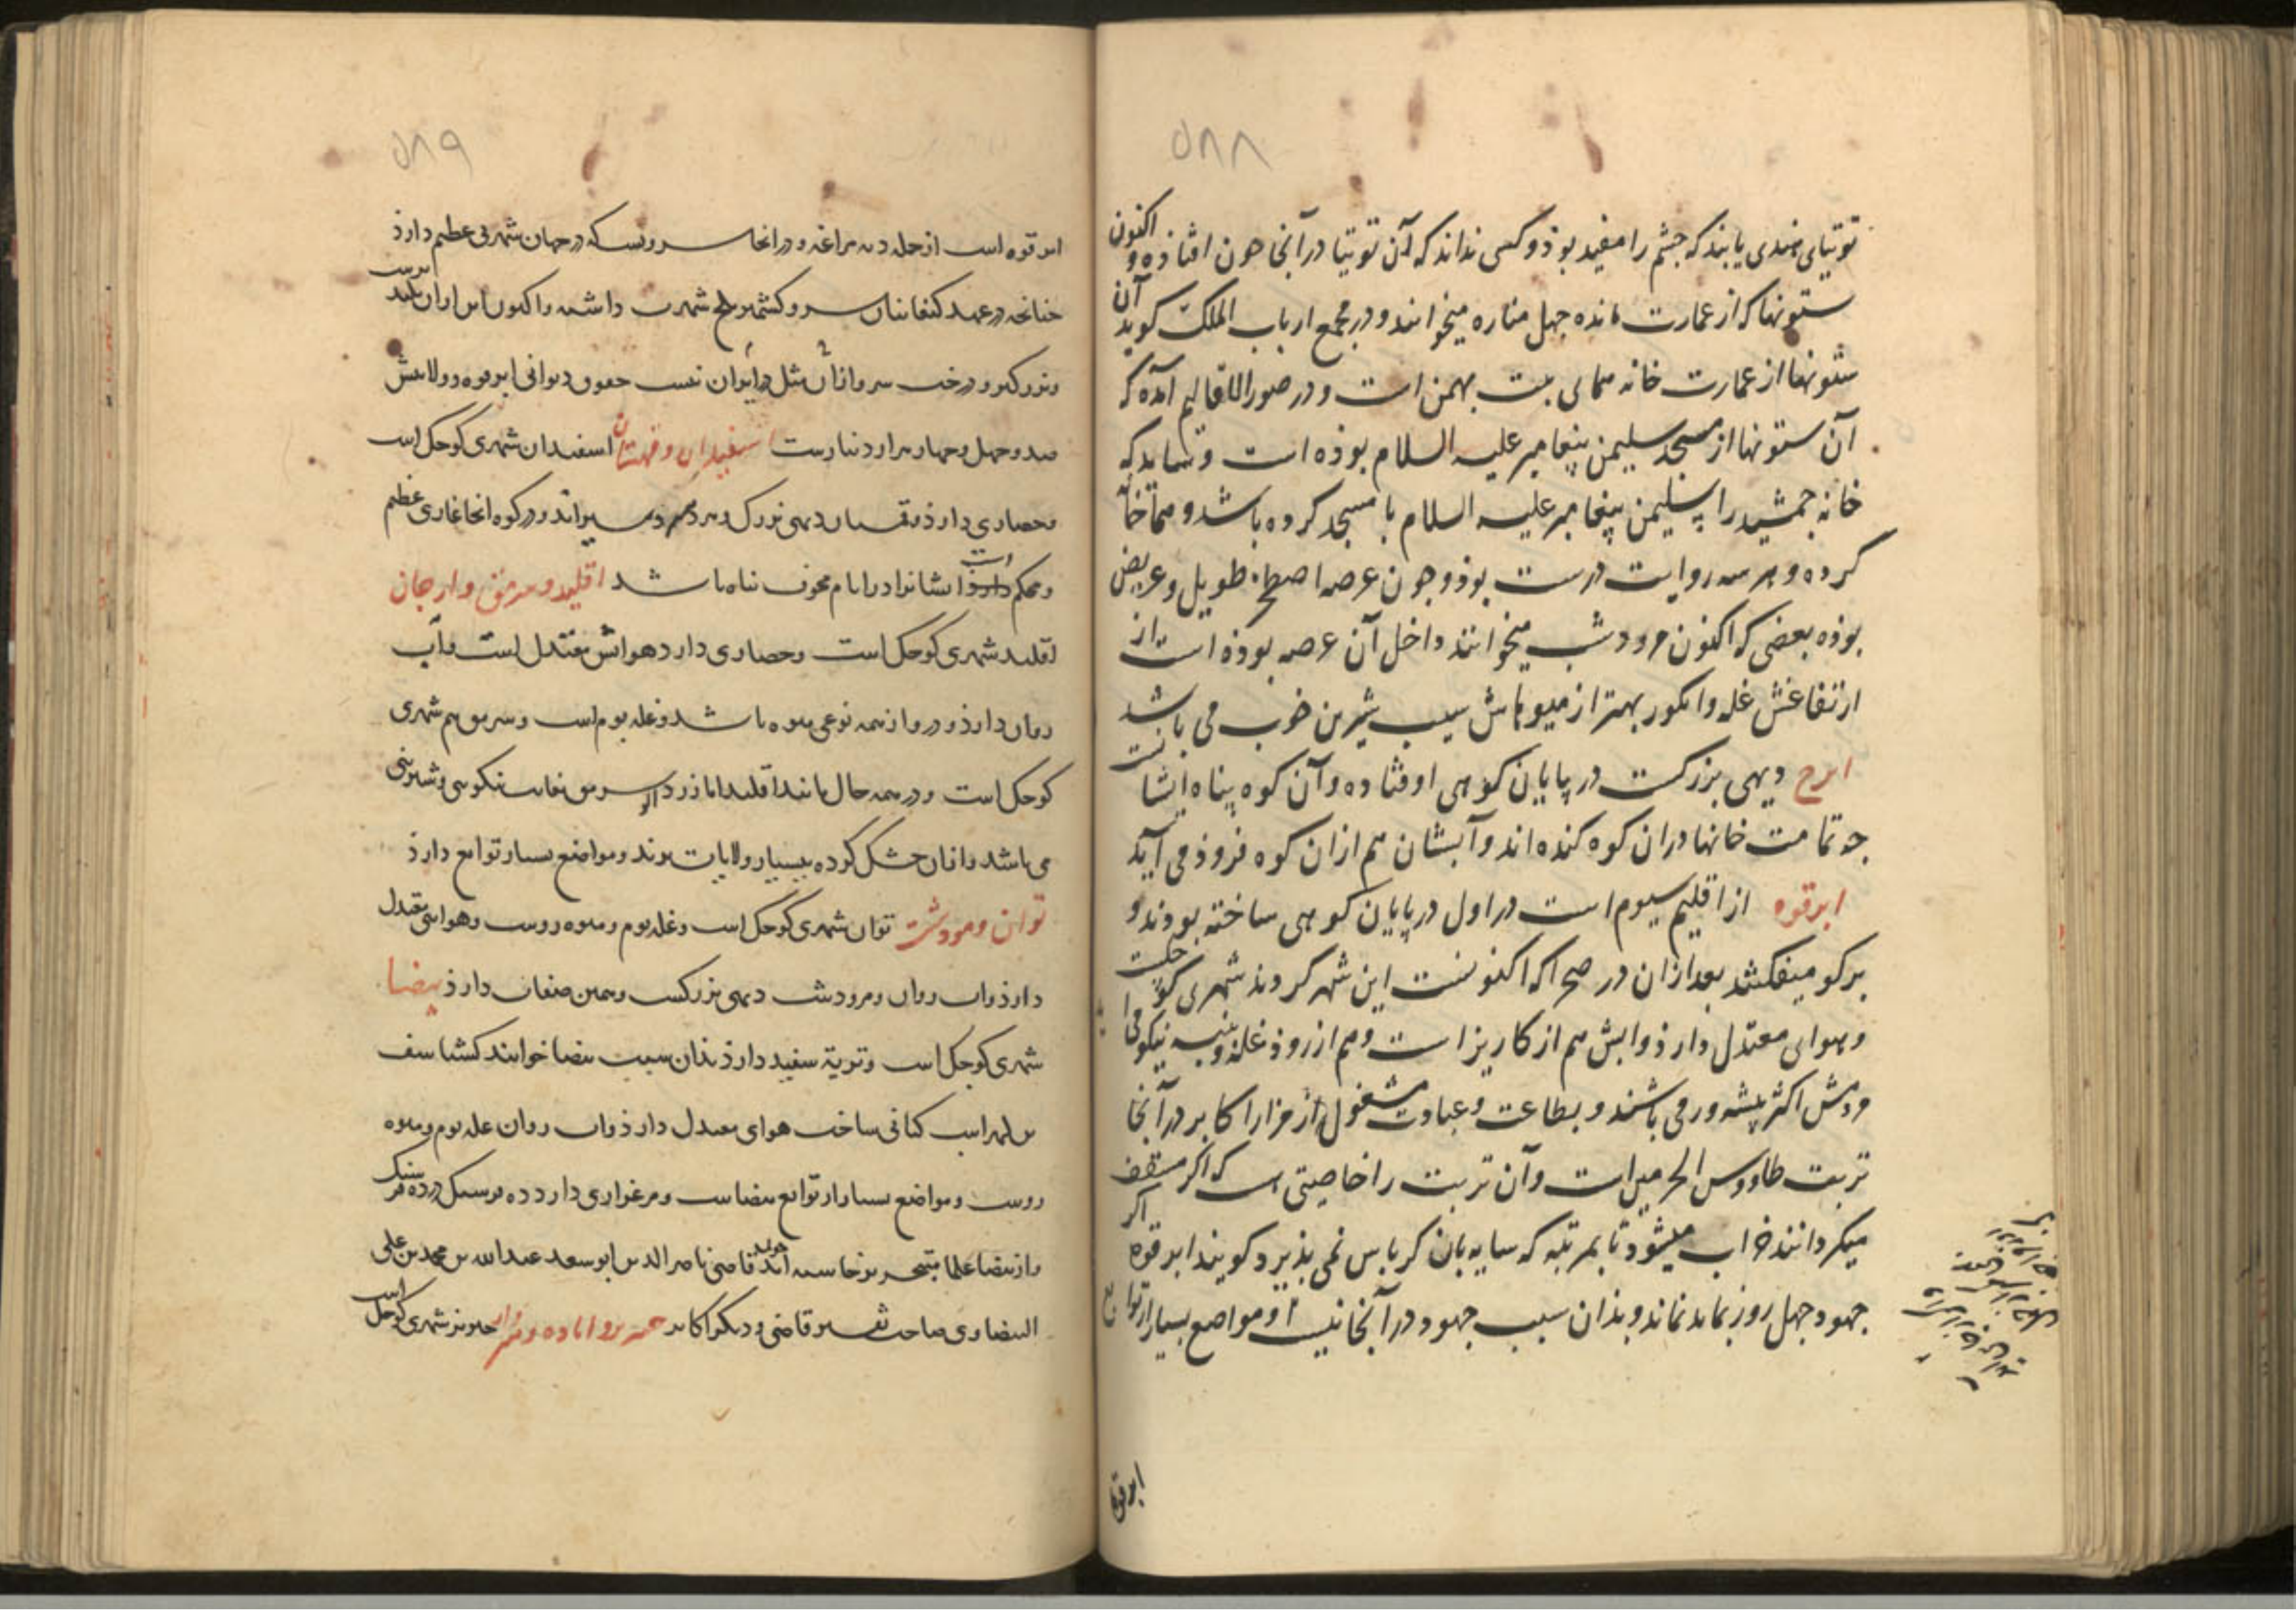 ۵۸۸
توتیای هندی یابند که چشم را مفید بوذ و کسی نداند که آن توتیا در آنجا چون افتاذه و اکنون
ستونها که از عمارت مانده چهل مناره میخوانند و در مجمع ارباب الملک کوید آن
ستونها از عمارت خانه همای بنت بهمن است و در صور الاقالیم آمده که
آن ستونها از مسجد سلیمن پیغامبر علیه السلام بوذه است و شاید که
خانه جمشید را سلیمن پیغامبر علیه السلام با مسجد کرده باشد و همآ خانه
کرده و هر سه روایت درست بوذ و چون عرصه اصطخر طویل و عریض
بوذه بعضی که اکنون مرودشت میخوانند داخل آن عرصه بوذه است از
ارتفاعش غله و انکور بهتر از میوهاش سیب شیرین خوب می باشد
ابرج دیهی بزرکست در پایان کوهی اوفتاده و آن کوه پناه ایشانست
چه تمامت خانها در ان کوه کنده اند و آبشان هم ازان کوه فروذ می آید
ابرقوه از اقلیم سیوم است در اول در پایان کوهی ساخته بودند و
برکو میکفتند بعد ازان در صحرا که اکنونست این شهر کردند شهری کوچکست
و هوای معتدل دارذ و آبش هم از کاریز است و هم از روذ غله و پنبه نیکو
مردمش اکثر پیشه ور می باشند و بطاعت و عبادت مشغول از مزار اکابر در آنجا
تربت طاووس الحرمین است و آن تربت را خاصیتی است که اکر مسقف
میکردانند خراب میشود تا بمرتبه که سایه بان کرباس نمی پذیرد و کویند ابرقوه اکر
جهود چهل روز بماند نماند و بذان سبب جهود در آنجا نیست و مواضع بسیار از توابع
ابرقوه
۵۸۹
ابرقوه است از جمله دیه مراغه و در انجا سرویست که در جهان شهرتی عظیم دارذ
چنانچه در عهد کیانیان سرو کشمر و بلخ شهرت داشته و اکنون این ازان بلند
و بزرکتر و درخت سرو ازان مثل در ایران نیست حقوق دیوانی ابرقوه و ولایتش
صد و چهل و چهار هزار دینارست اسفیدان و قهستان اسفیدان شهری کوچک است
و حصاری دارذ و قهستان دیهی بزرک و در کوه انجا غاری عظیم
و محکم است ایشانرا در ایام مخوف پناه باشد اقلید و سرمق و ارجان
اقلید شهری کوچک است و حصاری دارد هوایش معتدل است و آب
روان دارذ و درو از همه نوعی میوه باشد و غله بوم است و سرمق هم شهری
کوچک است و در همه حال مانند اقلید اما زرد الو سرمق بغایت نیکویی و شیرینی
می باشد و ازان خشک کرده ببسیار ولایات برند و مواضع بسیار توابع دارذ
توان و مرودشت توان شهری کوچک است و غله بوم و میوه روست و هوای معتدل
دارذ و آب روان و مرودشت دیهی بزرکست و همین صفات دارذ بیضا
شهری کوچک است و تربة سفید دارذ بذان سبب بیضا خوانند کشتاسف
بن لهراسب کیانی ساخت هوای معتدل دارذ و آب روان غله بوم و میوه
روست و مواضع بسیار از توابع بیضاست و مرغزاری دارد ده فرسنک در ده فرسنک
و از بیضا علما متبحر برخاسته اند چون قاضی ناصر الدین ابو سعد عبد الله بن محمد بن علی
البیضاوی صاحب تفسیر قاضی و دیکر اکابر شهری کوچک است